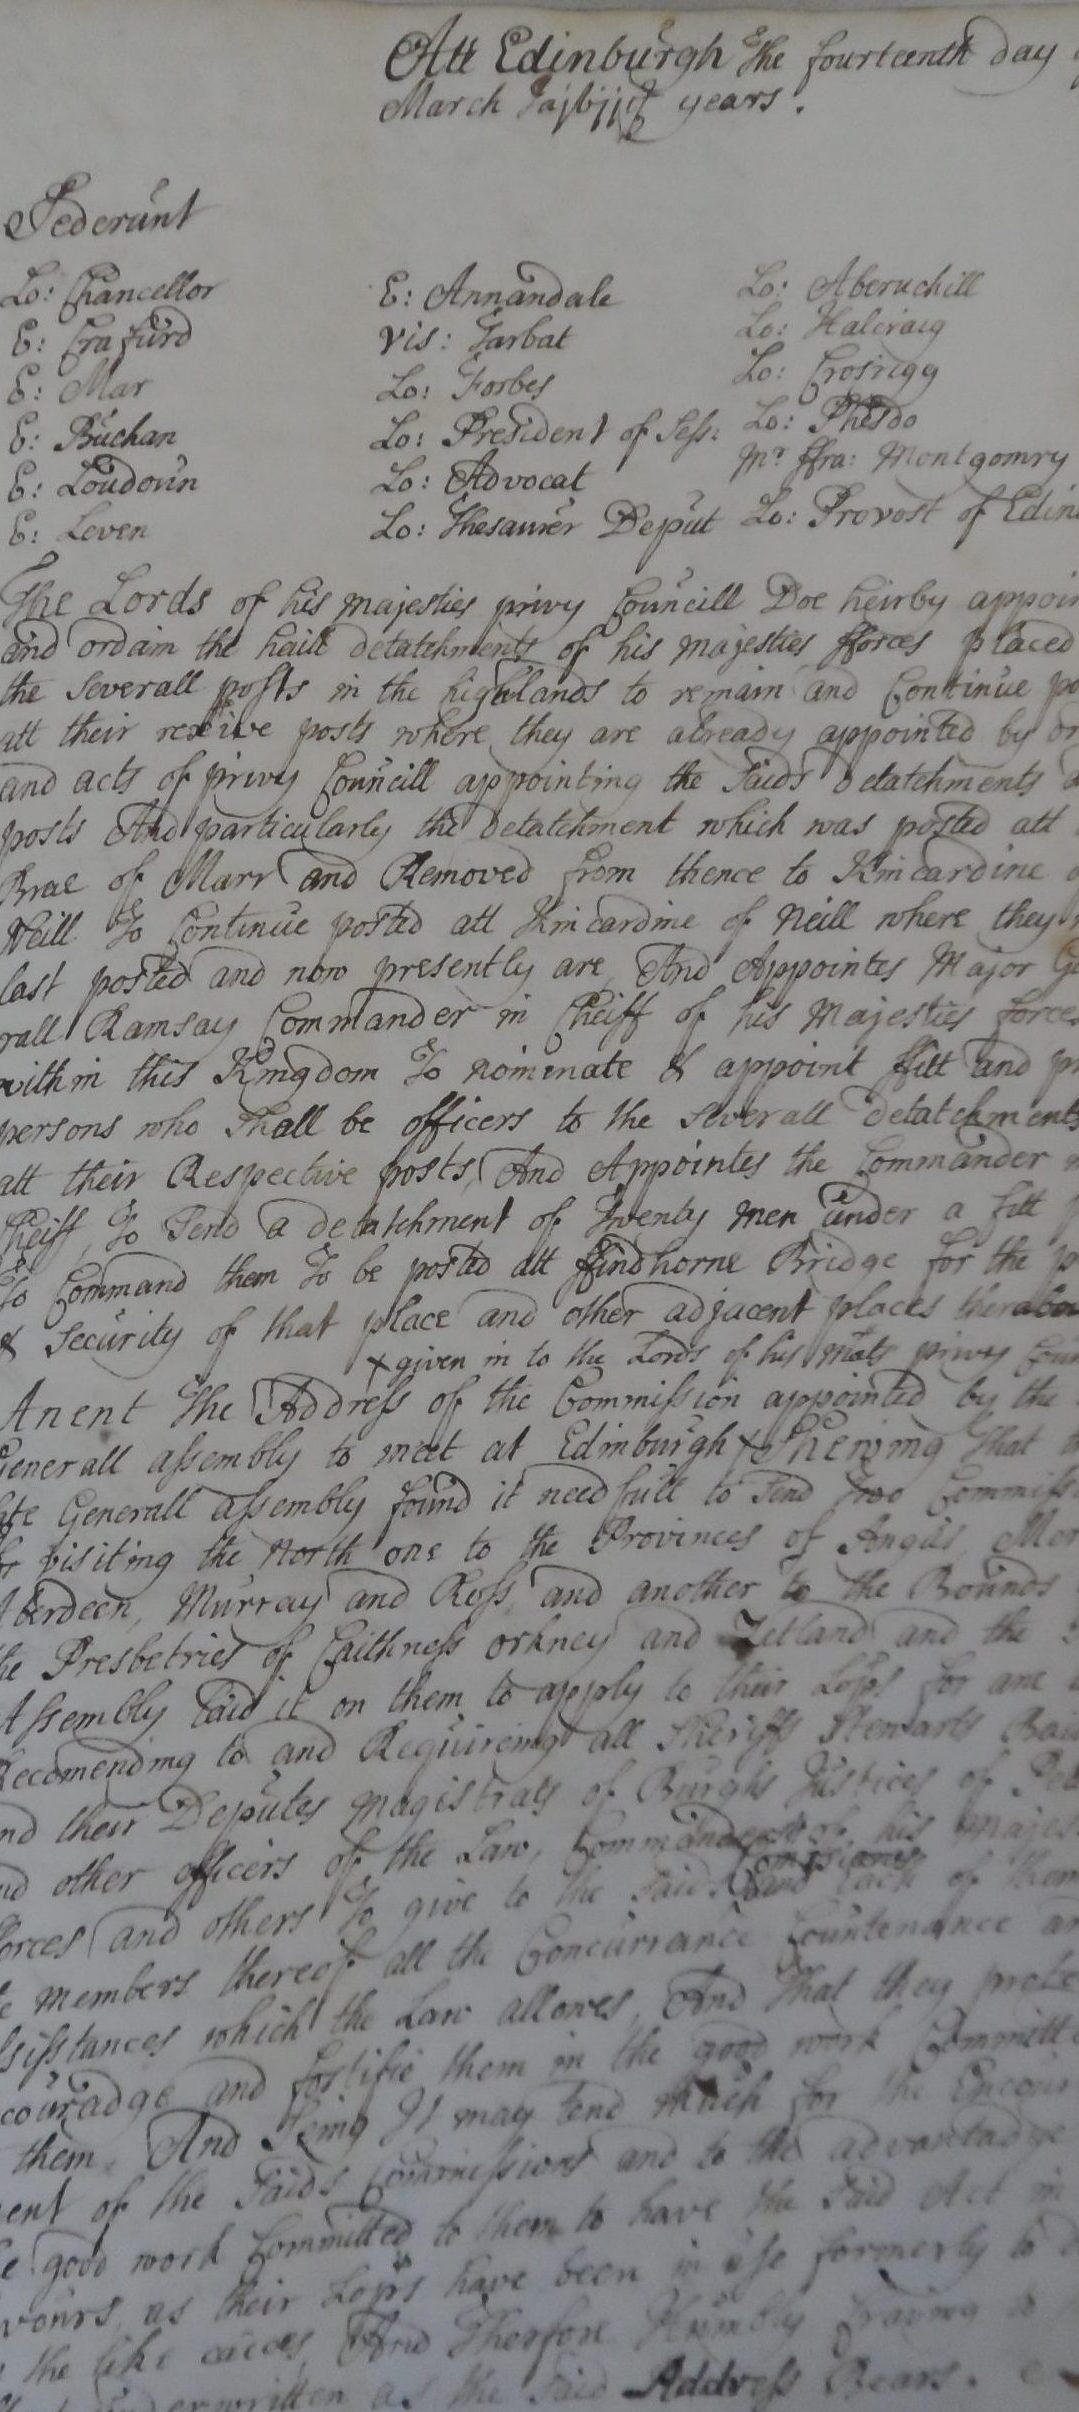 Att Edinburgh the fourteenth day
March years.
Sederunt
Lo: Chancellor
E: Crafurd
E: Mar
E: Buchan
E: Loudoun
E: Leven
E: Annandale
Vis: Tarbat
Lo: Forbes
Lo: President of Sess:
Lo: Advocat
Lo: Thesaurer Deput
Lo: Aberuchill
Lo: Halcraig
Lo: Crosrigg
Lo: Phesdo
Mr ffra: Montgomry
Lo: Provost of Edin
The Lords of his majesties privy Councill Doe heirby appoin
and ordain the haill detatchments of his majesties fforces placed
the severall posts in the highlands to remain and Continue po
att their rexive posts where they are already appointed by or
and acts of privy Councill appointing the saids detatchments
posts And particularly the detatchment which was posted att
Brae of Marr and Removed from thence to Kincardine
Neill To Continue posted att Kincardine of Neill where they
last posted and now presently are And Appointes Major Ge
rall Ramsay Commander in Cheiff of his Majesties forces
within this Kingdom To nominate & appoint ffitt and pr
persons who shall be officers to the severall detatchments
att their Respective posts, And Appointes the Commander
Cheiff, To send a detatchment of Twenty men under a fitt
To Command them To be posted att ffindhorne Bridge for the p
& security of that place and other adjacent places therabou
x given in to the Lords of his mats privy Coun
Anent the Address of the Commission appointed by the
Generall assembly to meet at Edinburgh x Shewing That
late Generall assembly found it needfull to send two Commiss
for visiting the North one to the Provinces of Angus Mer
Aberdeen, Murray and Ross, and another to the Bounds
the Presbetries of Caithness orkney and Zetland and the
Assembly laid it on them to apply to their Lops for ane
Recomending to and Requireing all Sheriffs Stewarts Bai
and their Deputes Magistrats of Burghs Justices of Pea
and other officers of the Law, Commanders of his Majes
forces and others To give to the saids Comissiones and each of them
the members thereof all the Concurrance Countenance an
assistances which the Law allowes, And That they prote
couradge and fortifie them in the good work Committe
them. And seing It may tend much for the Encour
ment of the saids Commissions and to the advantadge
the good work Committed to them to have the said Act in
vours, as their Lops have been in use formerly to
the like caices, And Therfore Humbly Craving
underwritten as the said Address Bears.